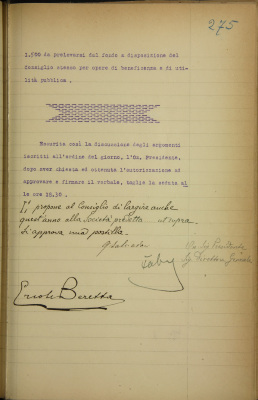 275
1.500 da prelevarsi dal fondo a disposizione del
Consiglio stesso per opere di beneficenza e di uti-
lità pubblica.
Esaurita così la discussione degli argomenti
iscritti all'ordine del giorno, l'On. Presidente,
dopo aver chiesta ed ottenuta l'autorizzazione ad
approvare e firmare il verbale, toglie la seduta al
le ore 18.30
Si propone al Consiglio di elargire anche
quest'anno alla Società predetta
Si approva una postilla.
Ercole Beretta